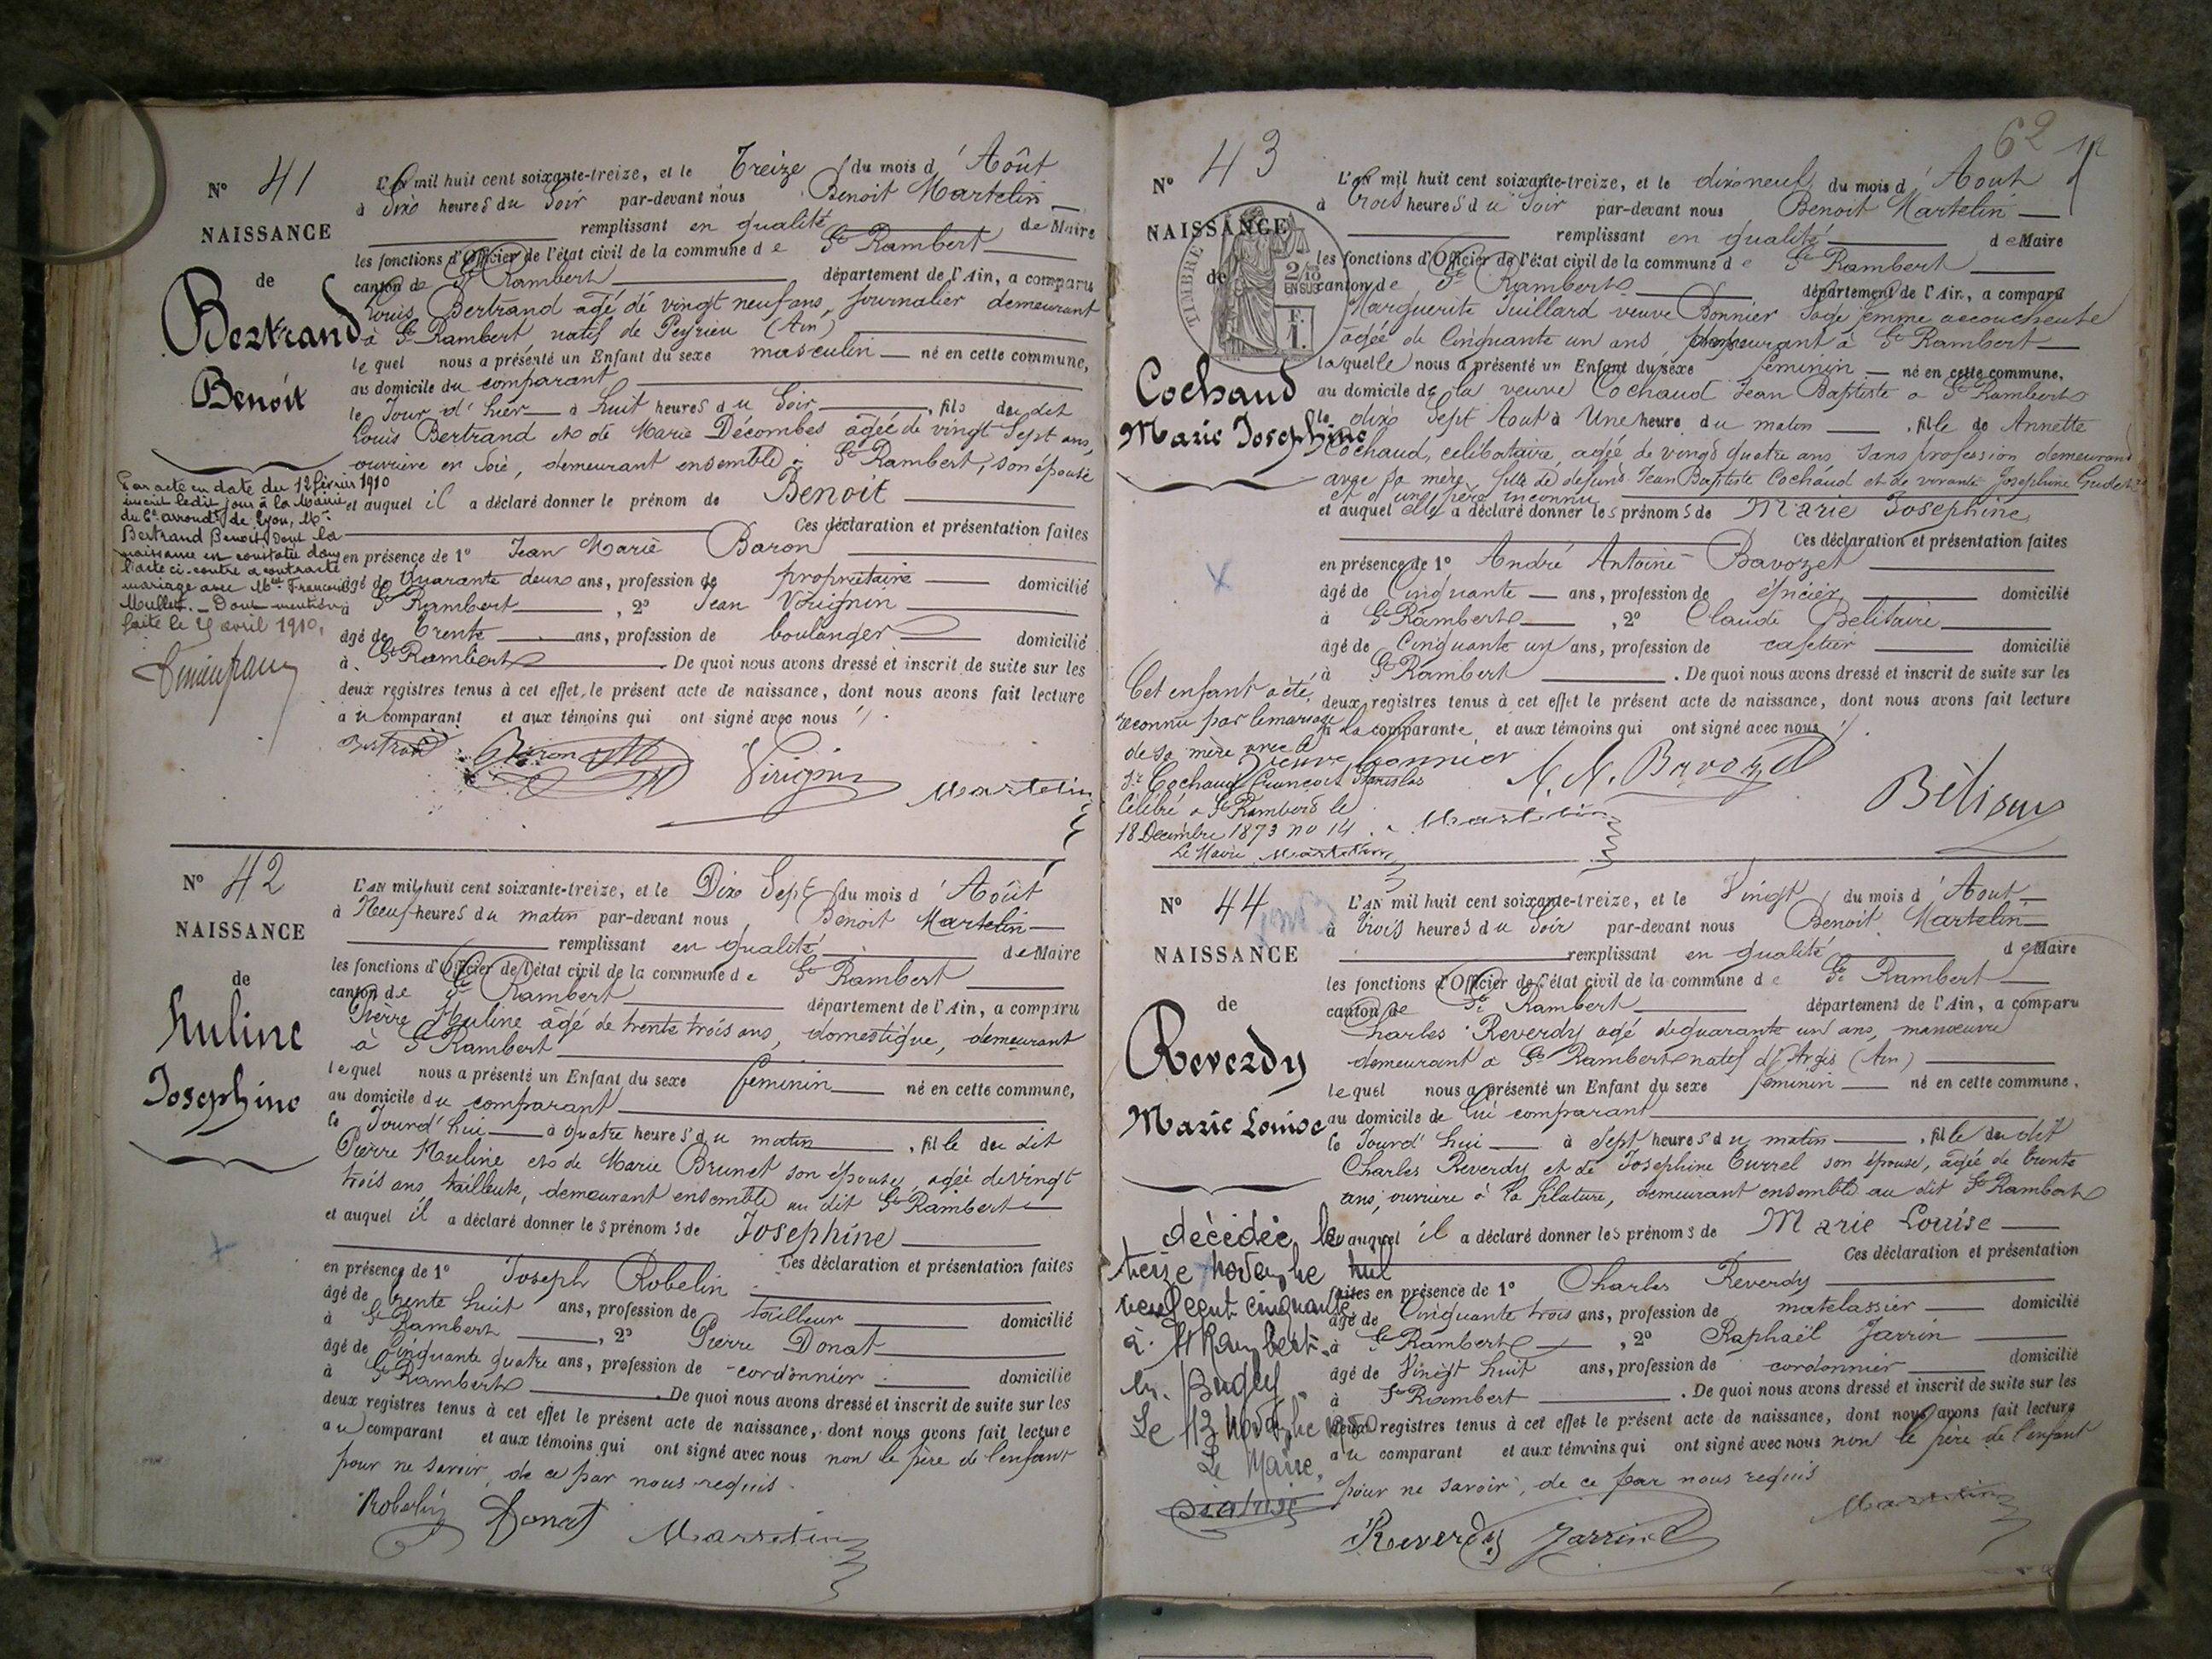 N° 41
NAISSANCE
de
Bertrand
Benoit
L'AN mil huit cent soixante-treize, et le Treize du mois d'Août
à Dix heures du Soir par-devant nous Benoit Martelin
remplissant en qualité de Maire
les fonctions d'Officier de l'état civil de la commune de St Rambert
canton de St Rambert département de l'Ain, a comparu
Louis Bertrand agé de vingt neuf ans, journalier demeurant
à St Rambert, natif de Peyrieu (Ain)
lequel nous a présenté un Enfant du sexe masculin né en cette commune,
au domicile du comparant
le Jour d'hier à huit heures du Soir, fils du dit
Louis Bertrand et de Marie Décombes agée de vingt Sept ans,
ouvrière en Soie, demeurant ensemble à St Rambert, son épouse
et auquel il a déclaré donner le prénom de Benoit
Ces déclaration et présentation faites
en présence de 1° Jean Marie Baron
âgé de Quarante deux ans, profession de propriétaire domicilié
à St Rambert, 2° Jean Virignin
âgé de Trente ans, profession de boulanger domicilié
à St Rambert. De quoi nous avons dressé et inscrit de suite sur les
deux registres tenus à cet effet, le présent acte de naissance, dont nous avons fait lecture
au comparant et aux témoins qui ont signé avec nous
Bertrand Baron Virignin Martelin
Par acte en date du 12 février 1910
inscrit ledit jour à la Mairie
du 6e arrondt de Lyon, Mr
Bertrand Benoit dont la
naissance est constatée dans
l'acte ci-contre a contracté
mariage avec Melle Françoise
Mullet. Dont mention
faite le avril 1910.
N° 42
NAISSANCE
de
Huline
Josephine
L'AN mil huit cent soixante-treize, et le Dix Sept du mois d'Août
à Neuf heures du matin par-devant nous Benoit Martelin
remplissant en qualité de Maire
les fonctions d'Officier de l'état civil de la commune de St Rambert
canton de St Rambert département de l'Ain, a comparu
Pierre Huline agé de trente trois ans, domestique, demeurant
à St Rambert
lequel nous a présenté un Enfant du sexe féminin né en cette commune,
au domicile du comparant
le Jourd'hui à quatre heures du matin, fille du dit
Pierre Huline et de Marie Brunet son épouse, agée de vingt
trois ans tailleuse, demeurant ensemble au dit St Rambert
et auquel il a déclaré donner les prénoms de Josephine
Ces déclaration et présentation faites
en présence de 1° Joseph Robelin
âgé de trente huit ans, profession de tailleur domicilié
à St Rambert, 2° Pierre Donat
âgé de Cinquante quatre ans, profession de cordonnier domicilié
à St Rambert. De quoi nous avons dressé et inscrit de suite sur les
deux registres tenus à cet effet le présent acte de naissance, dont nous avons fait lecture
au comparant et aux témoins qui ont signé avec nous non le père de l'enfant
pour ne savoir, de ce par nous requis
Robelin Donat Martelin
62
N° 43
NAISSANCE
de
TIMBRE
2/10 EN SUS
F. 1.
Cochaud
Marie Josephine
L'AN mil huit cent soixante-treize, et le dix neuf du mois d'Aout
à trois heures du Soir par-devant nous Benoit Martelin
remplissant en qualité de Maire
les fonctions d'Officier de l'état civil de la commune de St Rambert
canton de St Rambert département de l'Ain, a comparu
Marguerite Juillard veuve Bonnier Sage femme accoucheuse
agée de Cinquante un ans demeurant à St Rambert
laquelle nous a présenté un Enfant du sexe féminin né en cette commune,
au domicile de la veuve Cochaud Jean Baptiste à St Rambert
le dix Sept Aout à Une heure du matin, fille de Annette
Cochaud, celibataire, agée de vingt quatre ans sans profession demeurant
avec sa mère fille de defunt Jean Baptiste Cochaud et de vivante Josephine
et d'un père inconnu
et auquel elle a déclaré donner les prénoms de Marie Josephine
Ces déclaration et présentation faites
en présence de 1° André Antoine Bavozet
âgé de Cinquante ans, profession de épicier domicilié
à St Rambert, 2° Claude Belitaire
âgé de Cinquante un ans, profession de cafetier domicilié
à St Rambert. De quoi nous avons dressé et inscrit de suite sur les
deux registres tenus à cet effet le présent acte de naissance, dont nous avons fait lecture
à la comparante et aux témoins qui ont signé avec nous
veuve Bonnier A. A. Bavozet
Martelin
Cet enfant a été
reconnu par le mariage
de sa mère avec le
Sr Cochaud François Stanislas
Célébré à St Rambert le
18 Decembre 1873 no 14.
Le Maire Martelin
N° 44
NAISSANCE
de
Reverdy
Marie Louise
L'AN mil huit cent soixante-treize, et le Vingt du mois d'Aout
à trois heures du Soir par-devant nous Benoit Martelin
remplissant en qualité de Maire
les fonctions d'Officier de l'état civil de la commune de St Rambert
canton de St Rambert département de l'Ain, a comparu
Charles Reverdy agé de quarante un ans, manœuvre
demeurant à St Rambert natif d'Argis (Ain)
lequel nous a présenté un Enfant du sexe féminin né en cette commune,
au domicile de lui comparant
le Jourd'hui à Sept heures du matin, fille du dit
Charles Reverdy et de Josephine Turrel son épouse, agée de trente
ans, ouvrière à la filature, demeurant ensemble au dit St Rambert
et auquel il a déclaré donner les prénoms de Marie Louise
Ces déclaration et présentation
faites en présence de 1° Charles Reverdy
âgé de Cinquante trois ans, profession de matelassier domicilié
à St Rambert, 2° Raphaël Jarrin
âgé de Vingt huit ans, profession de cordonnier domicilié
à St Rambert. De quoi nous avons dressé et inscrit de suite sur les
deux registres tenus à cet effet le présent acte de naissance, dont nous avons fait lecture
au comparant et aux témoins qui ont signé avec nous non le père de l'enfant
pour ne savoir, de ce par nous requis
Martelin
Reverdy Jarrin
décédée le
treize novembre mil
neuf cent cinquante
à St Rambert
en Bugey
Le 13 novembre 1950
Le Maire,